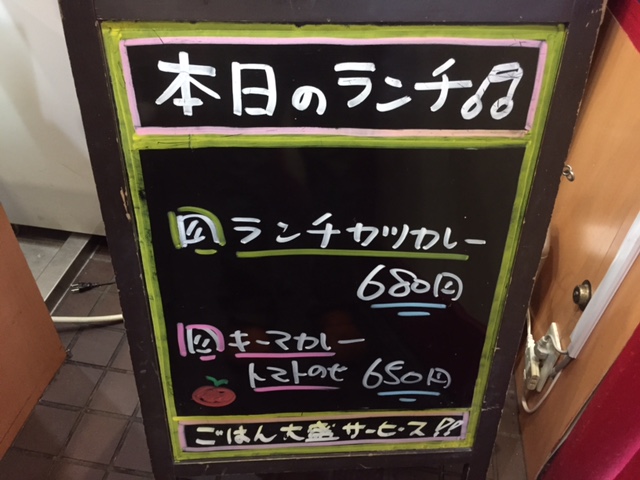 本日のランチ♫
ランチカツカレー
680円
キーマカレー
トマトのせ 650円
ごはん大盛サービス!!